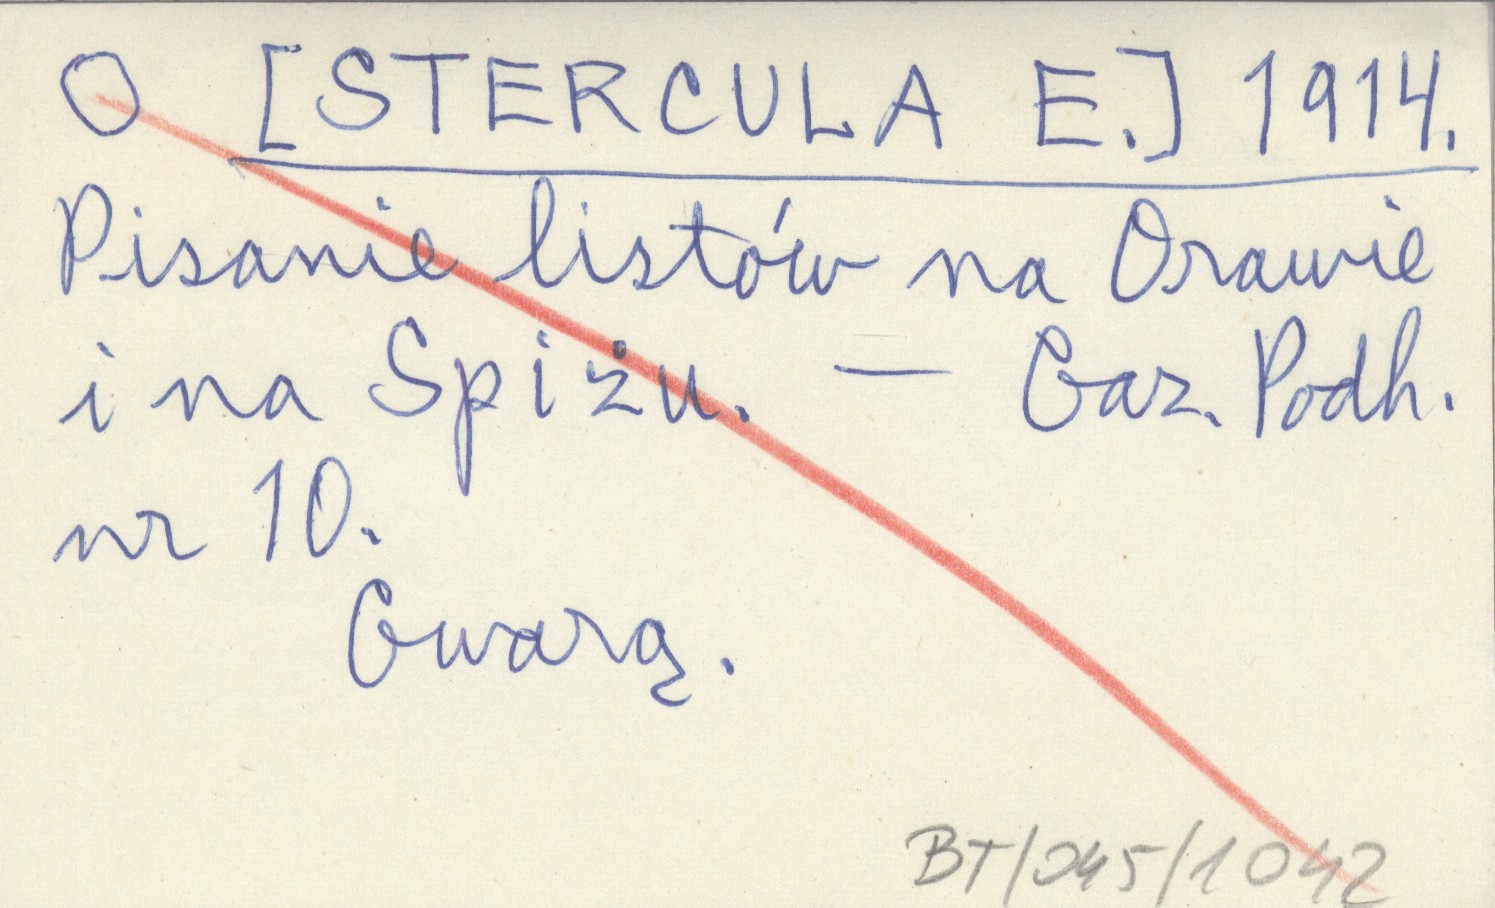 O [STERCULA E.] 1914.
Pisanie listów na Orawie
i na Spiżu. — Gaz. Podh.
nr 10.
Gwarą.
BT/045/1042